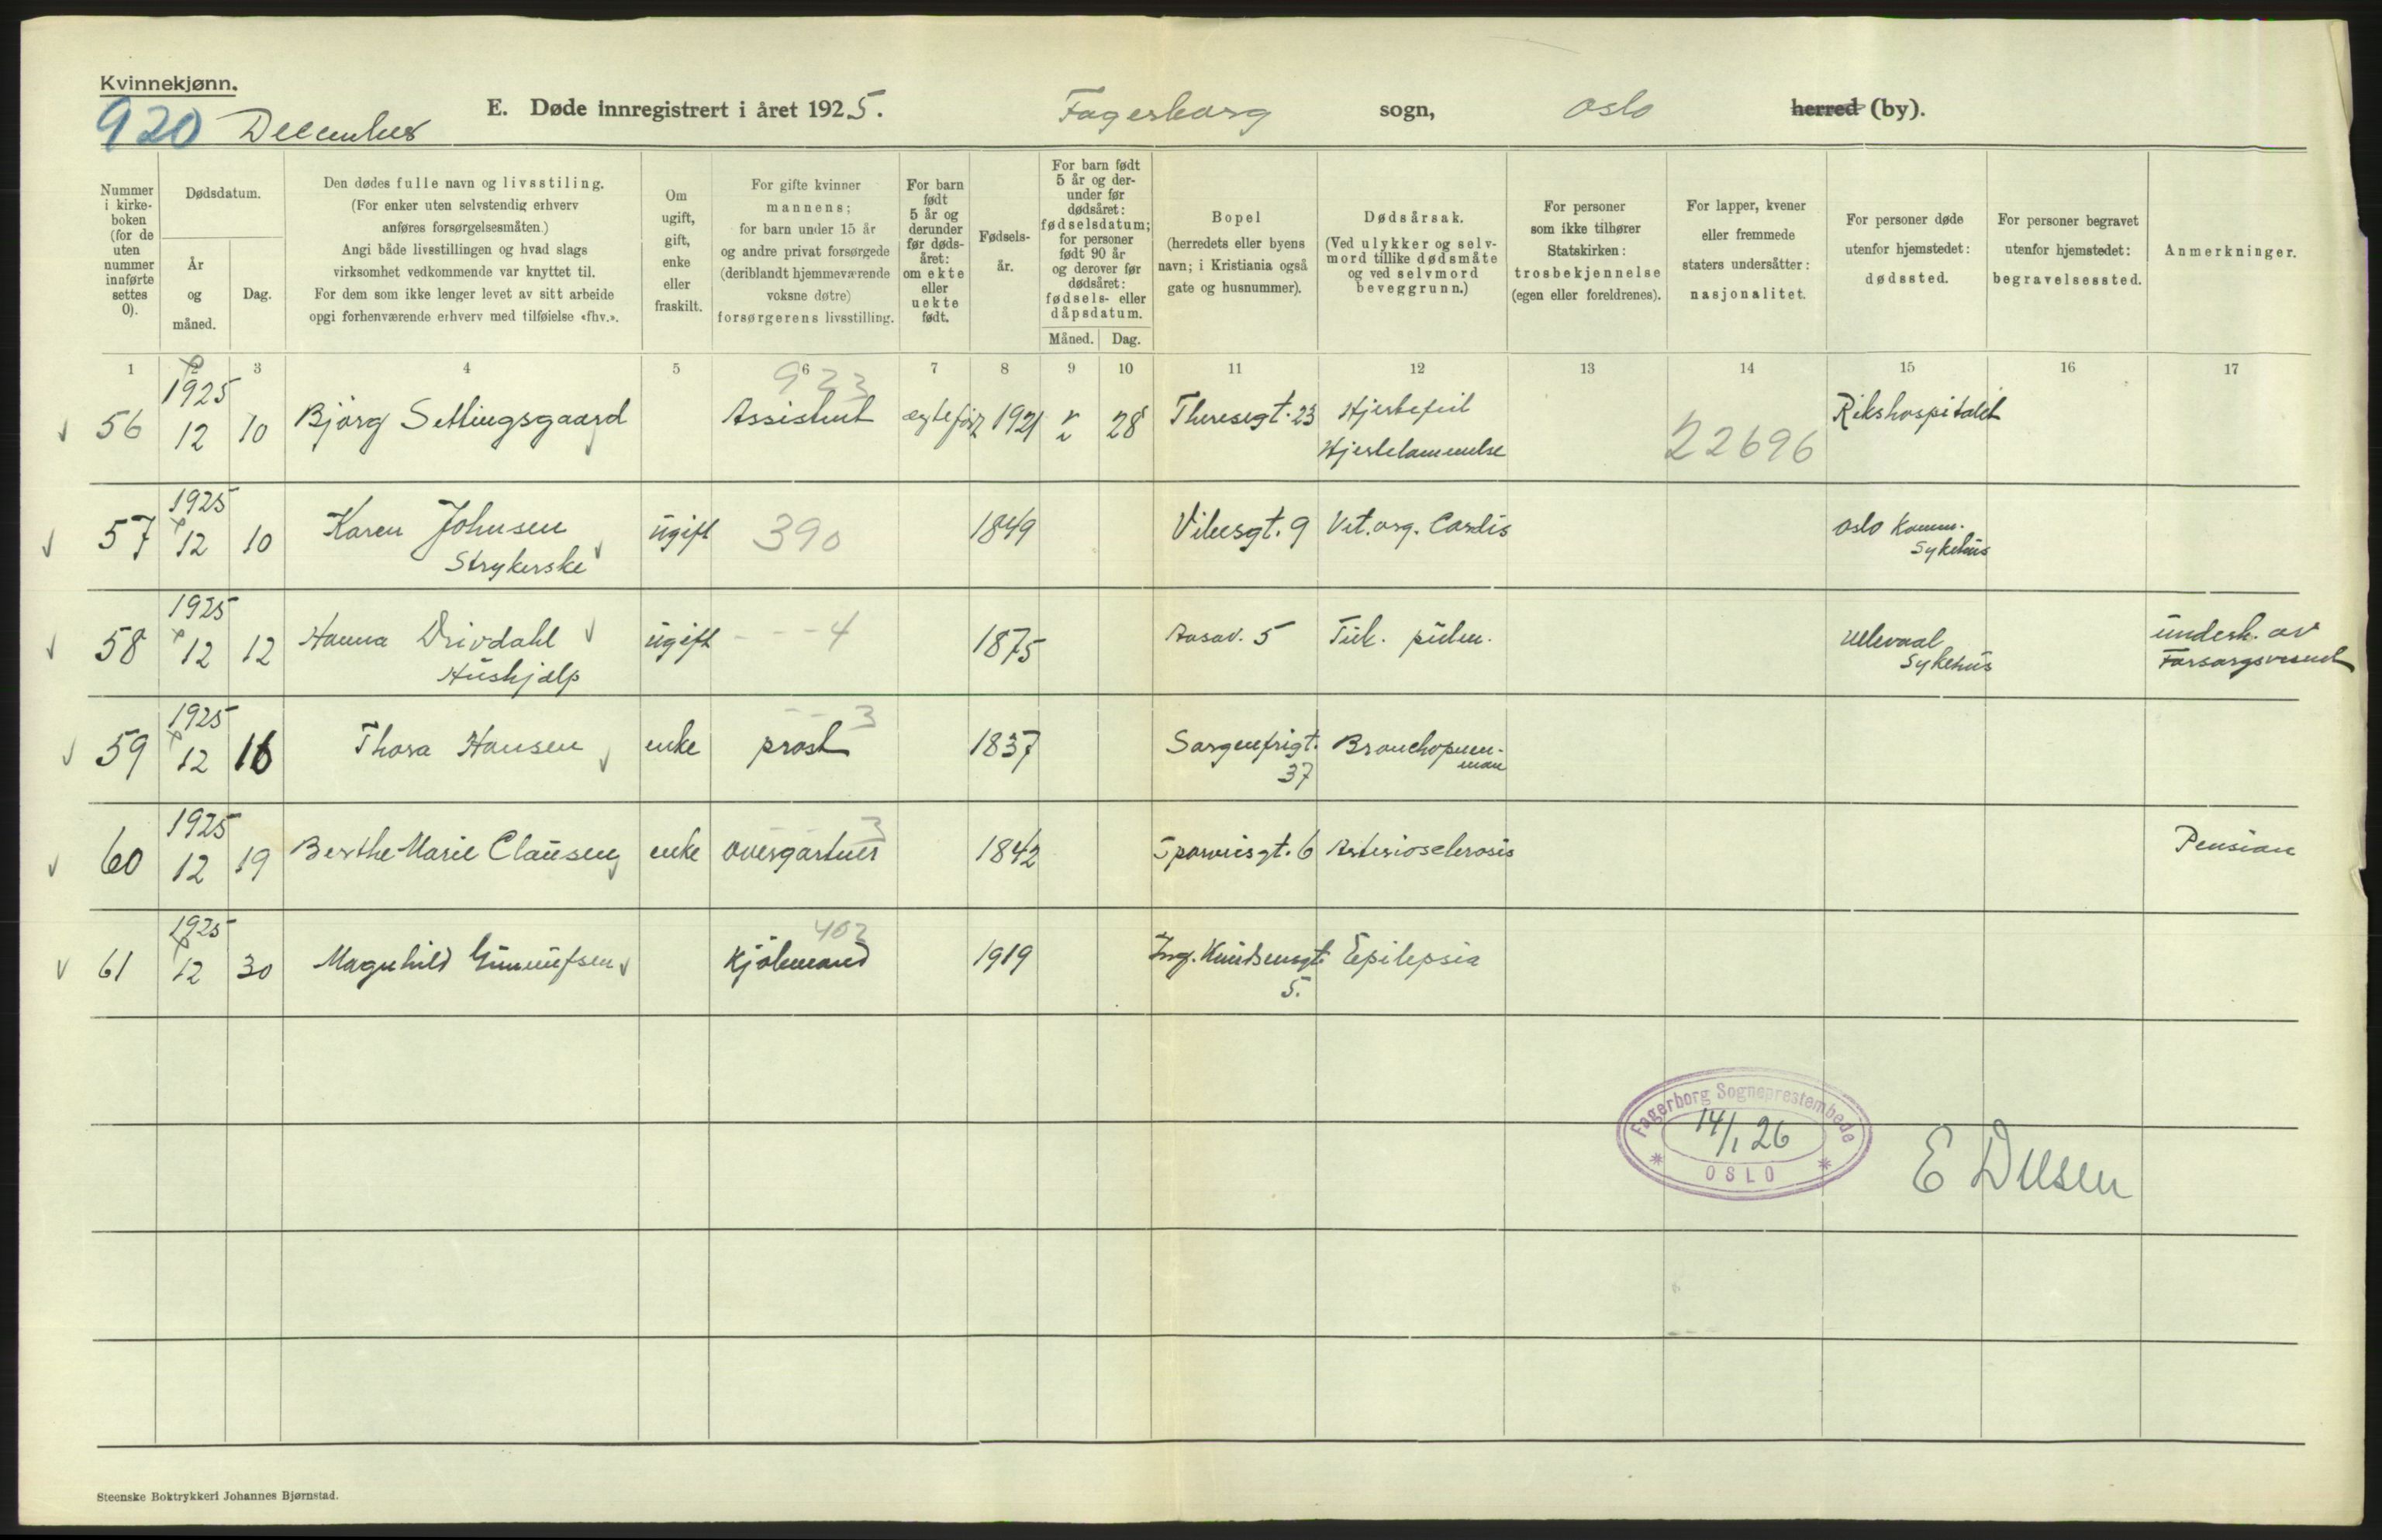 Kvinnekjønn.
920 December
E. Døde innregistrert i året 1925. Fagerborg sogn, Oslo herred (by).
Nummer i kirkeboken (for de uten nummer innførte settes 0).
Dødsdatum.
År og måned.
Dag.
Den dødes fulle navn og livsstiling.
(For enker uten selvstendig erhverv
anføres forsørgelsesmåten.)
Angi både livsstillingen og hvad slags
virksomhet vedkommende var knyttet til.
For dem som ikke lenger levet av sitt arbeide
opgi forhenværende erhverv med tilføielse «fhv.».
Om
ugift,
gift,
enke
eller
fraskilt.
For gifte kvinner
mannens;
for barn under 15 år
og andre privat forsørgede
(deriblandt hjemmeværende
voksne døtre)
forsørgerens livsstilling.
For barn
født
5 år og
derunder
før døds-
året:
om ekte
eller
uekte
født.
Fødsels-
år.
For barn født
5 år og der-
under før
dødsåret:
fødselsdatum;
for personer
født 90 år
og derover før
dødsåret:
fødsels- eller
dåpsdatum.
Måned. Dag.
Bopel
(herredets eller byens
navn; i Kristiania også
gate og husnummer).
Dødsårsak.
(Ved ulykker og selv-
mord tillike dødsmåte
og ved selvmord
beveggrunn.)
For personer
som ikke tilhører
Statskirken:
trosbekjennelse
(egen eller foreldrenes).
For lapper, kvener
eller fremmede
staters undersåtter:
nasjonalitet.
For personer døde
utenfor hjemstedet:
dødssted.
For personer begravet
utenfor hjemstedet:
begravelsessted.
Anmerkninger.
1 2 3 4 5 6 7 8 9 10 11 12 13 14 15 16 17
1925 923
56 12 10 Bjørg Settingsgaard Assistent 1921 28 Theresegt. 23 Hjertefeil Rikshospitalet
Hjertelammelse 22696
1925
57 12 10 Karen Johnsen ugift 390 1849 Vibesgt. 9 Vit. org. Cordis Oslo Komm.
Strykerske Sykehus
1925
58 12 12 Hanna Drivdahl ugift - - - 4 1875 Aasav. 5 Tub. pulm. Ullevaal undersk. av
Hushjelp Sykehus Forsorgsvesnet
1925 - - 3
59 12 16 Thora Hansen enke prost 1837 Sorgenfrigt. Bronchopneu-
37 mon
1925 3
60 12 19 Berthe Marie Clausen enke overgartner 1842 Sporveisgt. 6 Arteriosclerosis Pension
1925 402
61 12 30 Magnhild Gunnufsen Kjølemand 1919 Ing. Knudsensgt. Epilepsia
5.
Fagerborg Sogneprestembede
14/1 26
OSLO
Steenske Boktrykkeri Johannes Bjørnstad.